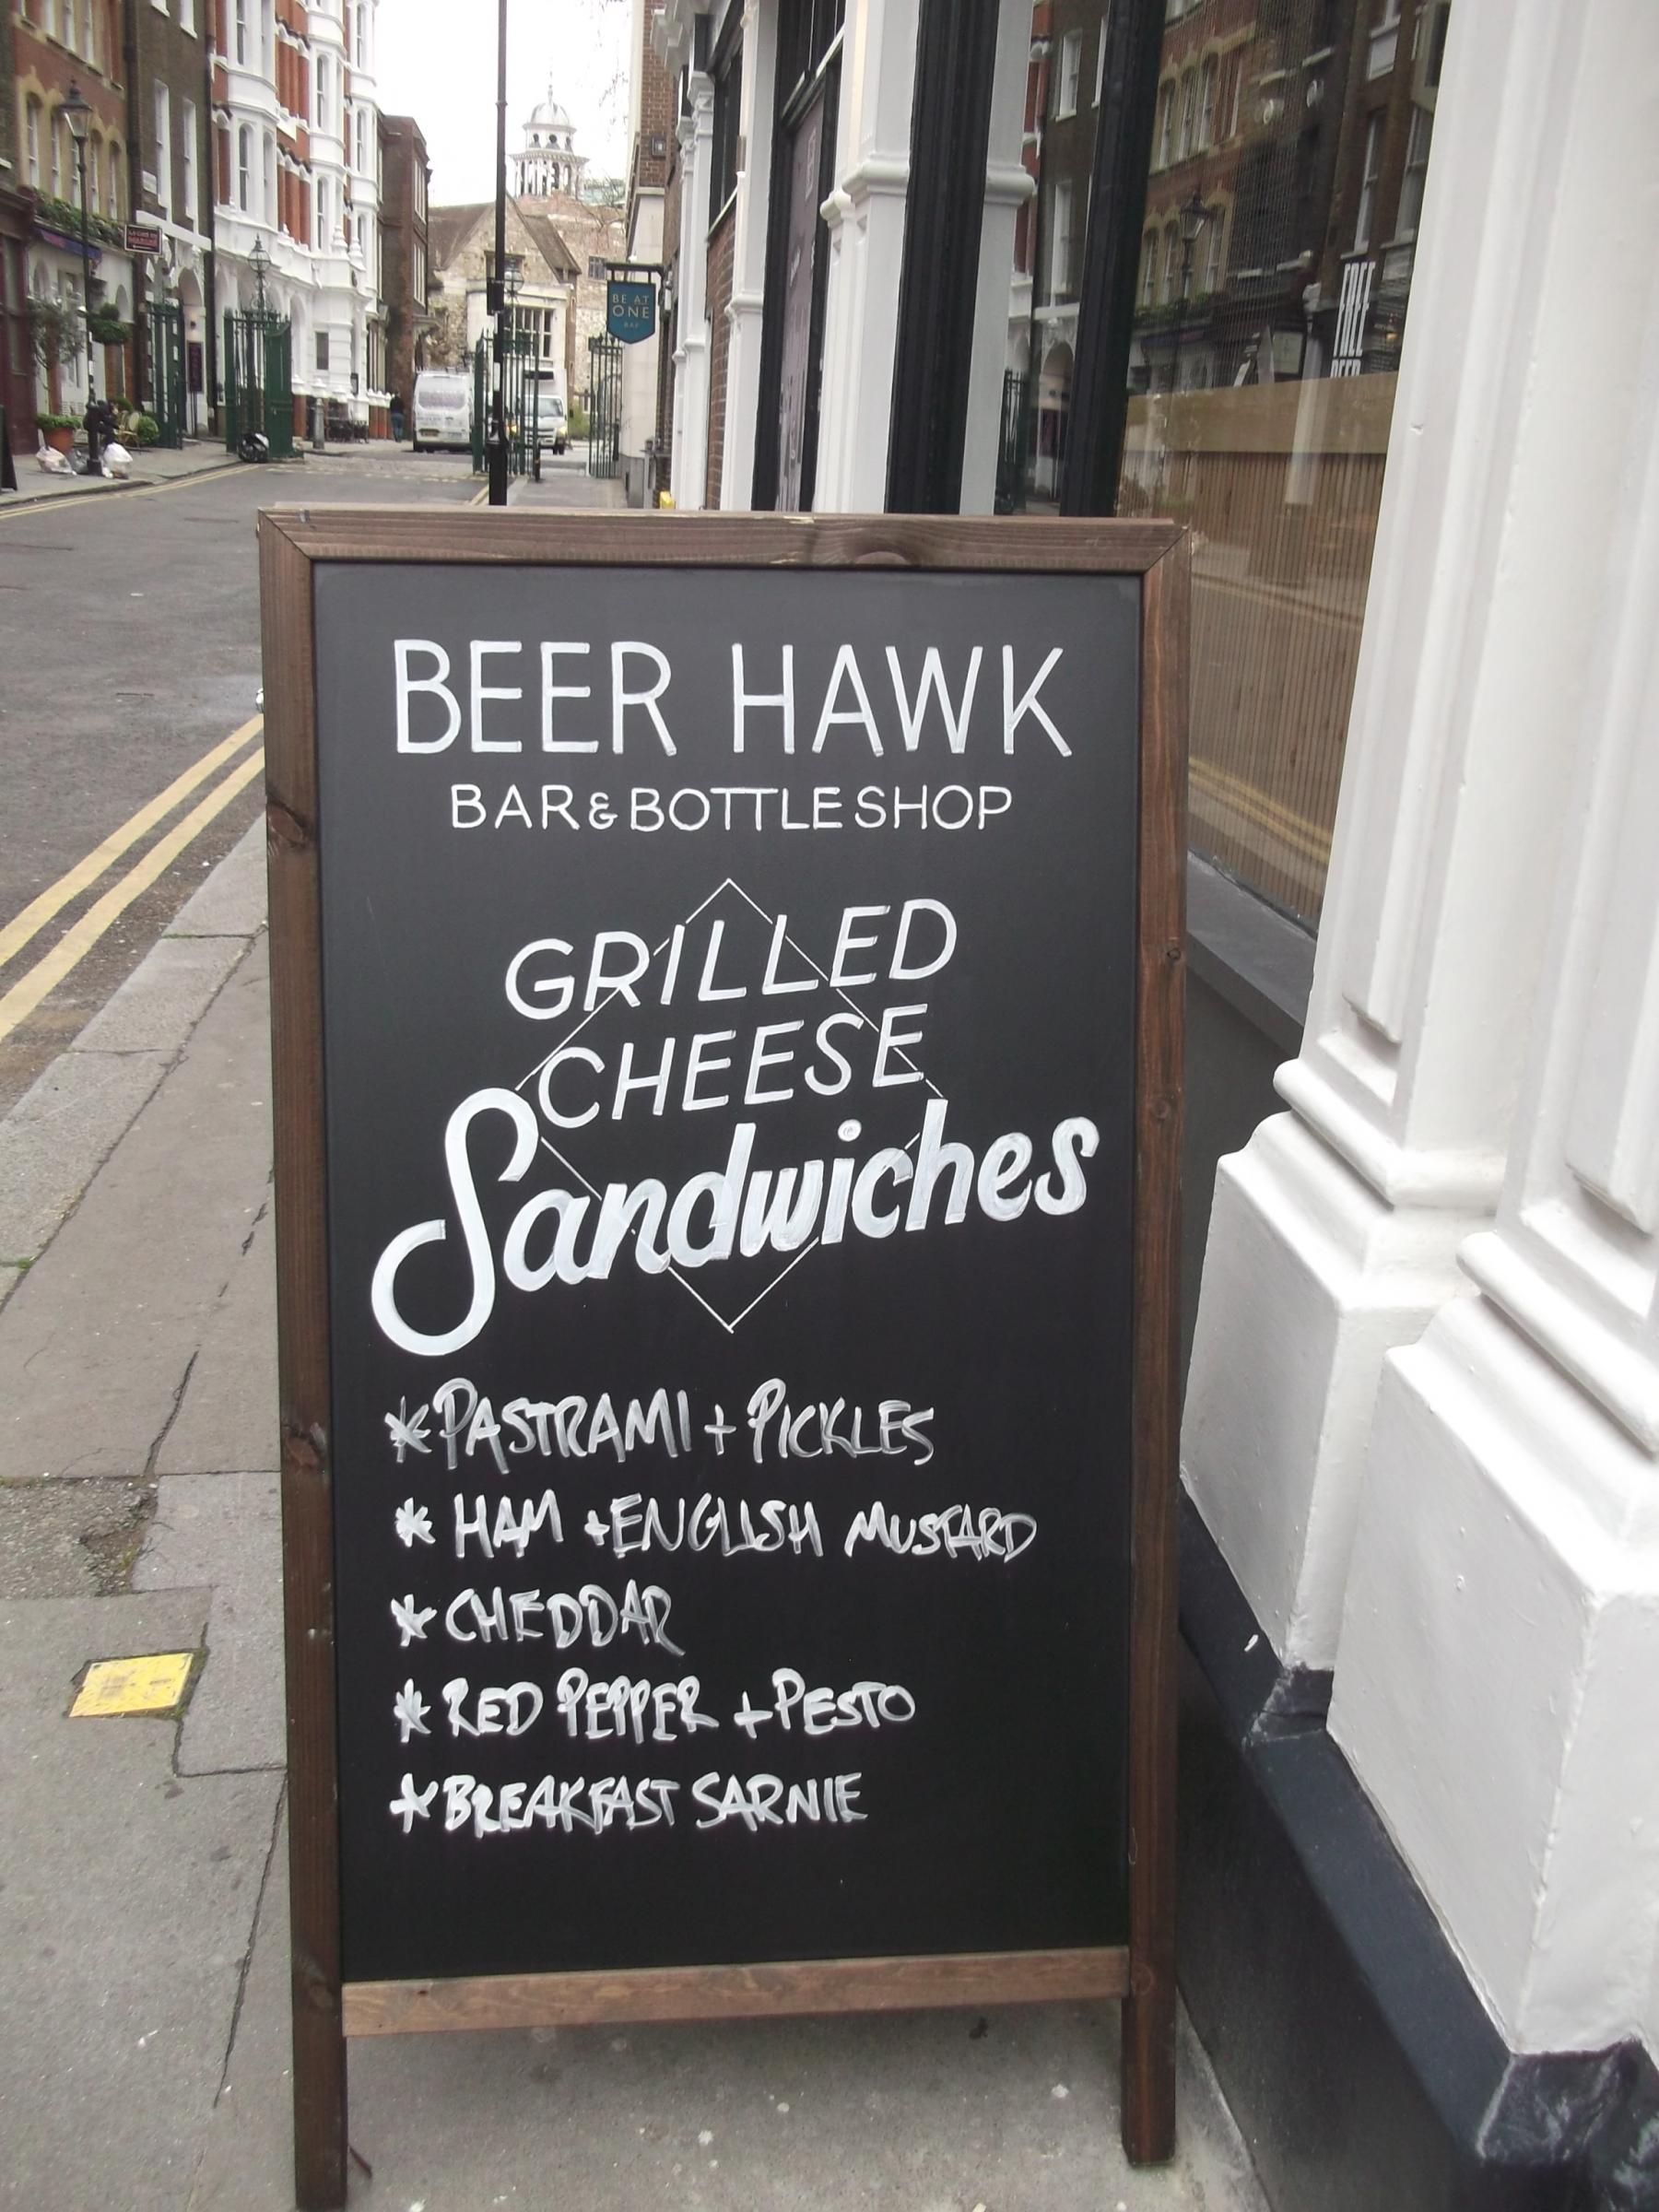 BEER HAWK
BAR & BOTTLE SHOP
GRILLED
CHEESE
Sandwiches
*PASTRAMI + PICKLES
* HAM + ENGLISH MUSTARD
* CHEDDAR
* RED PEPPER + PESTO
* BREAKFAST SARNIE
BE AT
ONE
BAR
FREE
BEER